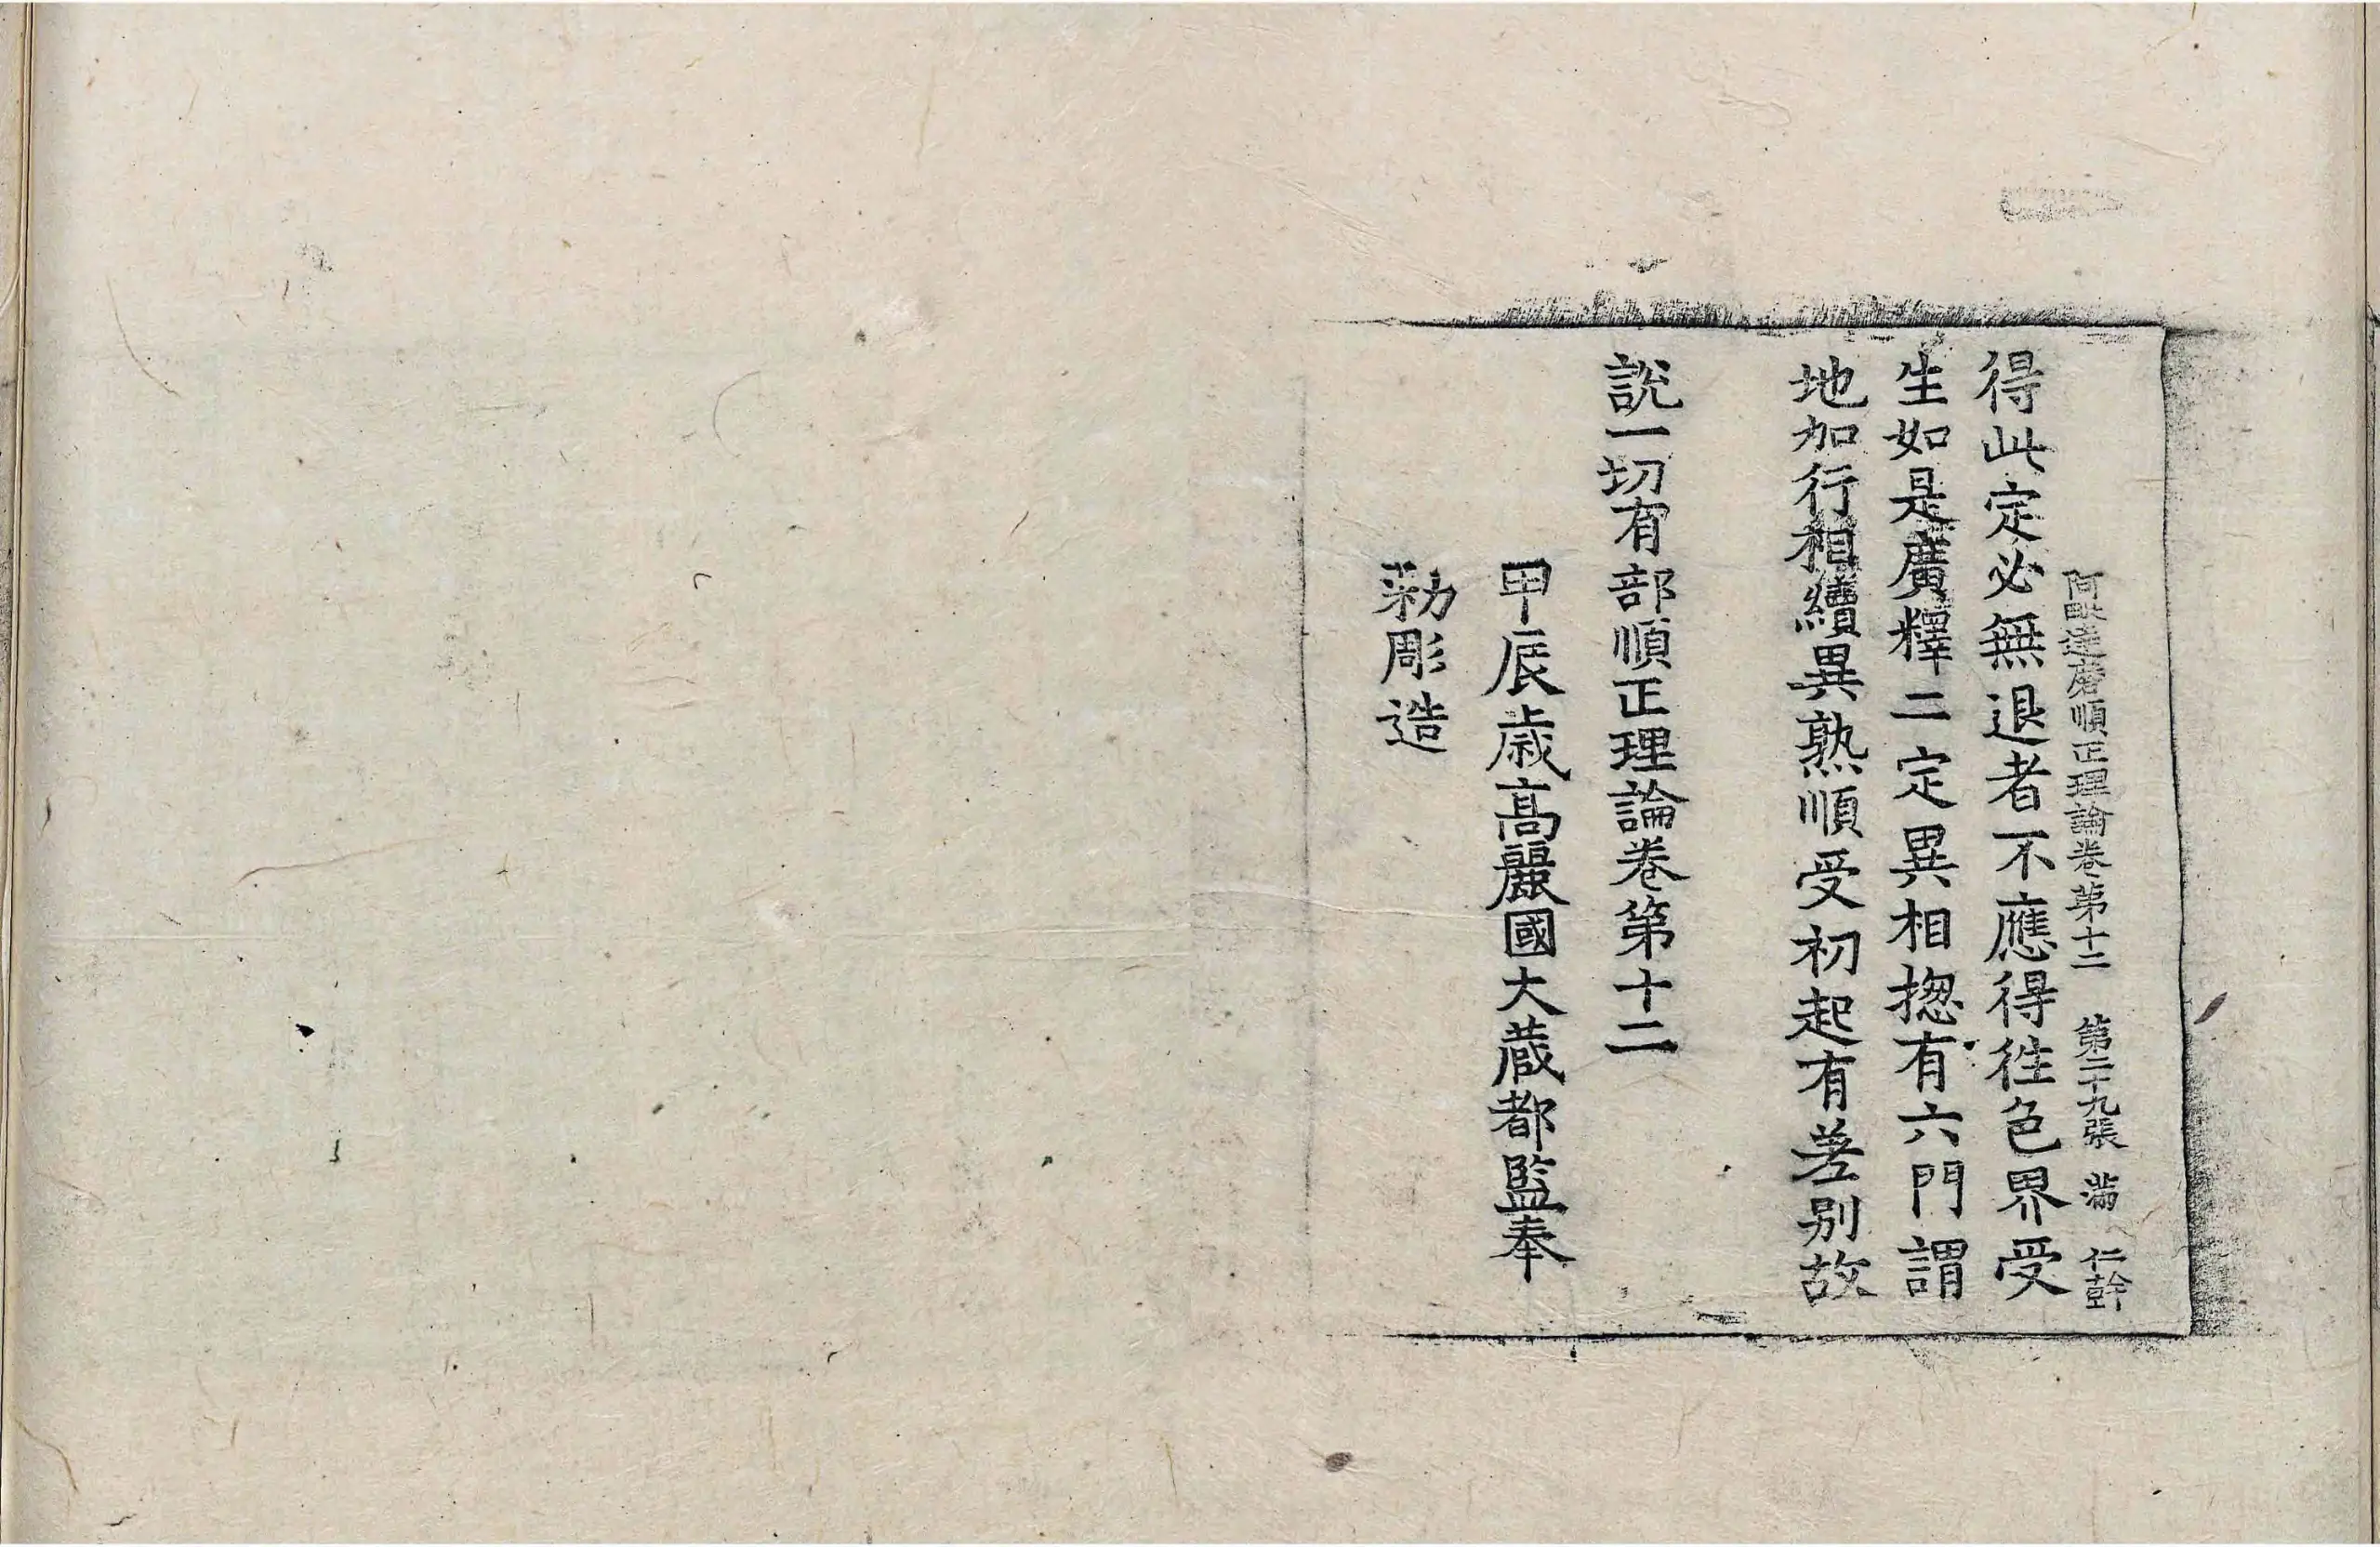 阿毗達磨順正理論卷第十二 第二十九張 滿 仁幹
得此定必無退者不應得徃色界受
生如是廣釋二定異相揔有六門謂
地加行相續異熟順受初起有差別故
說一切有部順正理論卷第十二
甲辰歲高麗國大藏都監奉
勑彫造